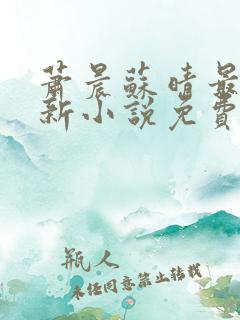 萧晨蘇晴最
新小說免費
瓶人
未經同意禁止转载